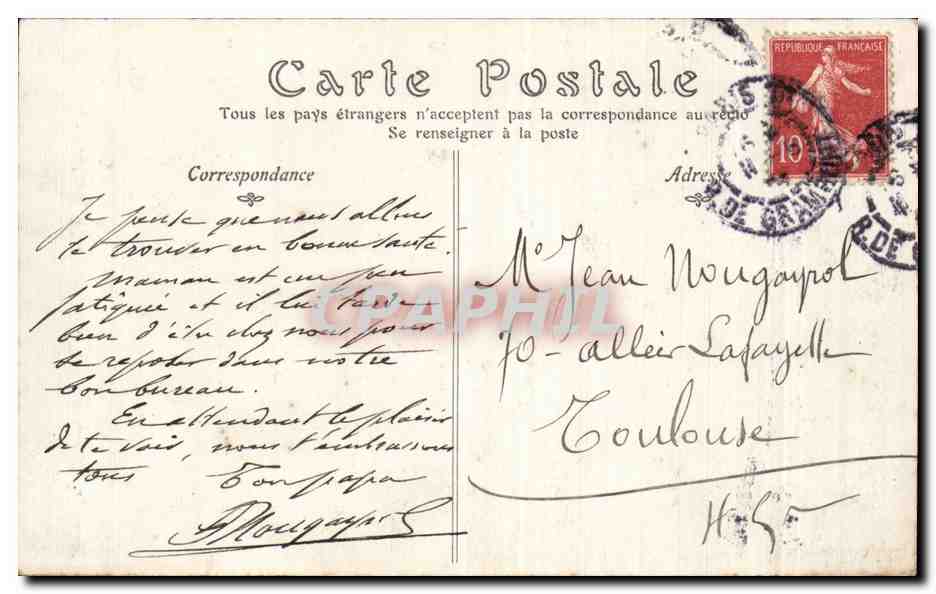 Carte Postale
Tous les pays étrangers n'acceptent pas la correspondance au recto
Se renseigner à la poste
Correspondance
Je pense que nous allons
te trouver en bonne santé.
Maman est un peu
fatiguée et il lui tarde
bien d'être chez nous pour
se reposer dans notre
bon bureau.
En attendant le plaisir
de te voir, nous t'embrassons
tous
Ton papa
Nougayrol
Adresse
Mr Jean Nougayrol
70 - allées Lafayette
Toulouse
H. G
RÉPUBLIQUE FRANÇAISE
10
R. DE GRAMMONT
R. DE G
CPAPHIL